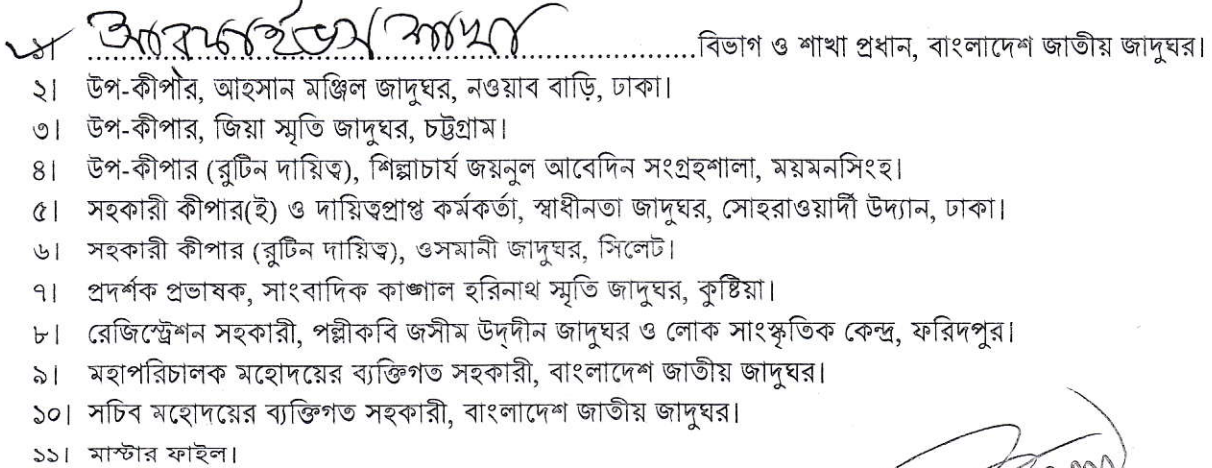 ১। আরকাইভস শাখা বিভাগ ও শাখা প্রধান, বাংলাদেশ জাতীয় জাদুঘর।
২। উপ-কীপার, আহসান মঞ্জিল জাদুঘর, নওয়াব বাড়ি, ঢাকা।
৩। উপ-কীপার, জিয়া স্মৃতি জাদুঘর, চট্টগ্রাম।
৪। উপ-কীপার (রুটিন দায়িত্ব), শিল্পাচার্য জয়নুল আবেদিন সংগ্রহশালা, ময়মনসিংহ।
৫। সহকারী কীপার(ই) ও দায়িত্বপ্রাপ্ত কর্মকর্তা, স্বাধীনতা জাদুঘর, সোহরাওয়ার্দী উদ্যান, ঢাকা।
৬। সহকারী কীপার (রুটিন দায়িত্ব), ওসমানী জাদুঘর, সিলেট।
৭। প্রদর্শক প্রভাষক, সাংবাদিক কাঙ্গাল হরিনাথ স্মৃতি জাদুঘর, কুষ্টিয়া।
৮। রেজিস্ট্রেশন সহকারী, পল্লীকবি জসীম উদ্‌দীন জাদুঘর ও লোক সাংস্কৃতিক কেন্দ্র, ফরিদপুর।
৯। মহাপরিচালক মহোদয়ের ব্যক্তিগত সহকারী, বাংলাদেশ জাতীয় জাদুঘর।
১০। সচিব মহোদয়ের ব্যক্তিগত সহকারী, বাংলাদেশ জাতীয় জাদুঘর।
১১। মাস্টার ফাইল।